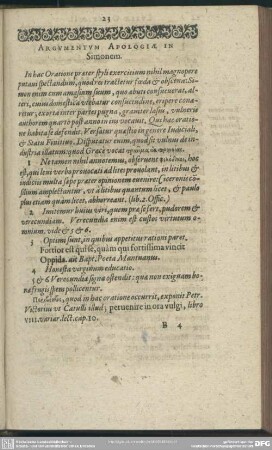 23
ARGVMENTVM APOLOGIÆ IN
Simonem.
In hac Oratione præter styli exercitium nihil magnopere
putaui spectandum, quod res tractetur fœda & obscœna. Si-
mon enim cum amasium suum, quo abuti consueuerat, al-
teri, cuius domestica vtebatur consuetudine, eripere cona-
retur, exorta inter partes pugna, grauiter læsus, vulneris
authorem quarto post anno in ius vocauit. Qui hac oratio-
ne habita se defendit. Versatur quæstio in genere Iudiciali,
& Statu Finitiuo. Disputatur enim, quod sit vulnus de in-
dustria illatum, quod Græce vocat
1 Ne tamen nihil annotemus, obseruent hoc
est, qui leui verbo pronocati ad lites prouolant, in litibus &
iniuriis multa sæpe præter opinionem euenire: Ciceronis con-
silium amplectantur, vt à litibus quantum licet, & paulo
plus etiam quàm licet, abhorreant. (lib. 2. Offic.)
2 Imitemur huius viri, quem præ se fert, pudorem &
verecundiam. Verecundia enim est custos virtutum o-
mnium. vide & 5 & 6.
3 Optimi sunt, in quibus appetitui rationi paret.
Fortior est qui se, quàm qui fortissima vincit
Oppida. ait Bapt. Poeta Mantuanus.
4 Honesta virginum educatio.
5 & 6 Verecundia signa ostendit: qua non exiguam bo-
na frugis spem pollicentur.
quod in hac oratione occurrit, exponit Petr.
Victorius vt Catulli illud; peruenire in ora vulgi, libro
VIII. variar. lect. cap. 10.
B 4